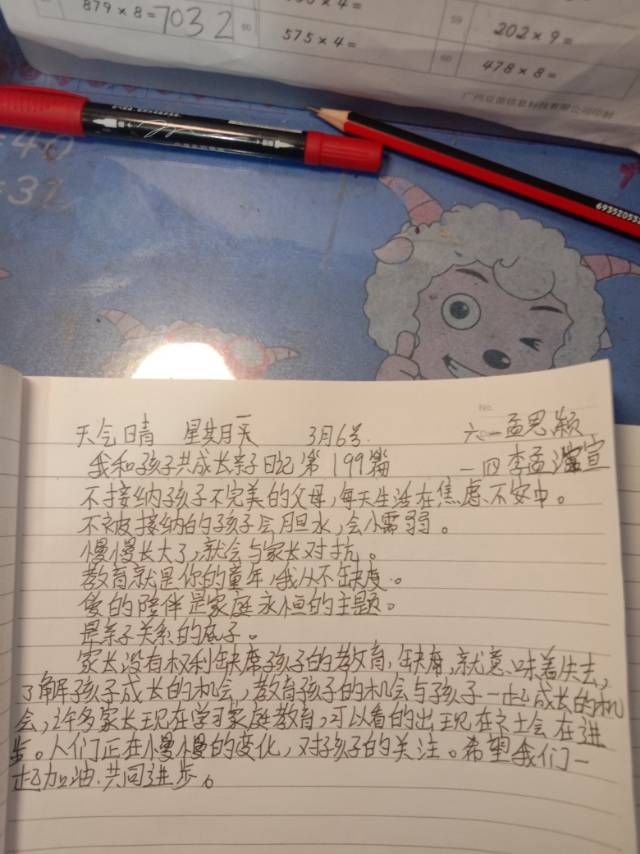 879 × 8 = 7032
575 × 4 =
59
202 × 9 =
60
478 × 8 =
693520532
天气晴 星期天 3月6号. 六一孟思颖
我和孩子共成长亲子日记第199篇 一四李孟滢宣
不接纳孩子不完美的父母,每天生活在焦虑不安中。
不被接纳的孩子会胆小,会懦弱。
慢慢长大了,就会与家长对抗。
教育就是你的童年,我从不缺席。
爱的陪伴是家庭永恒的主题。
是亲子关系的底子。
家长没有权利缺席孩子的教育,缺席,就意味着失去,
了解孩子成长的机会,教育孩子的机会与孩子一起成长的机
会,许多家长现在学习家庭教育,可以看的出现在社会在进
步。人们正在慢慢的变化,对孩子的关注。希望我们一
起加油.共同进步。